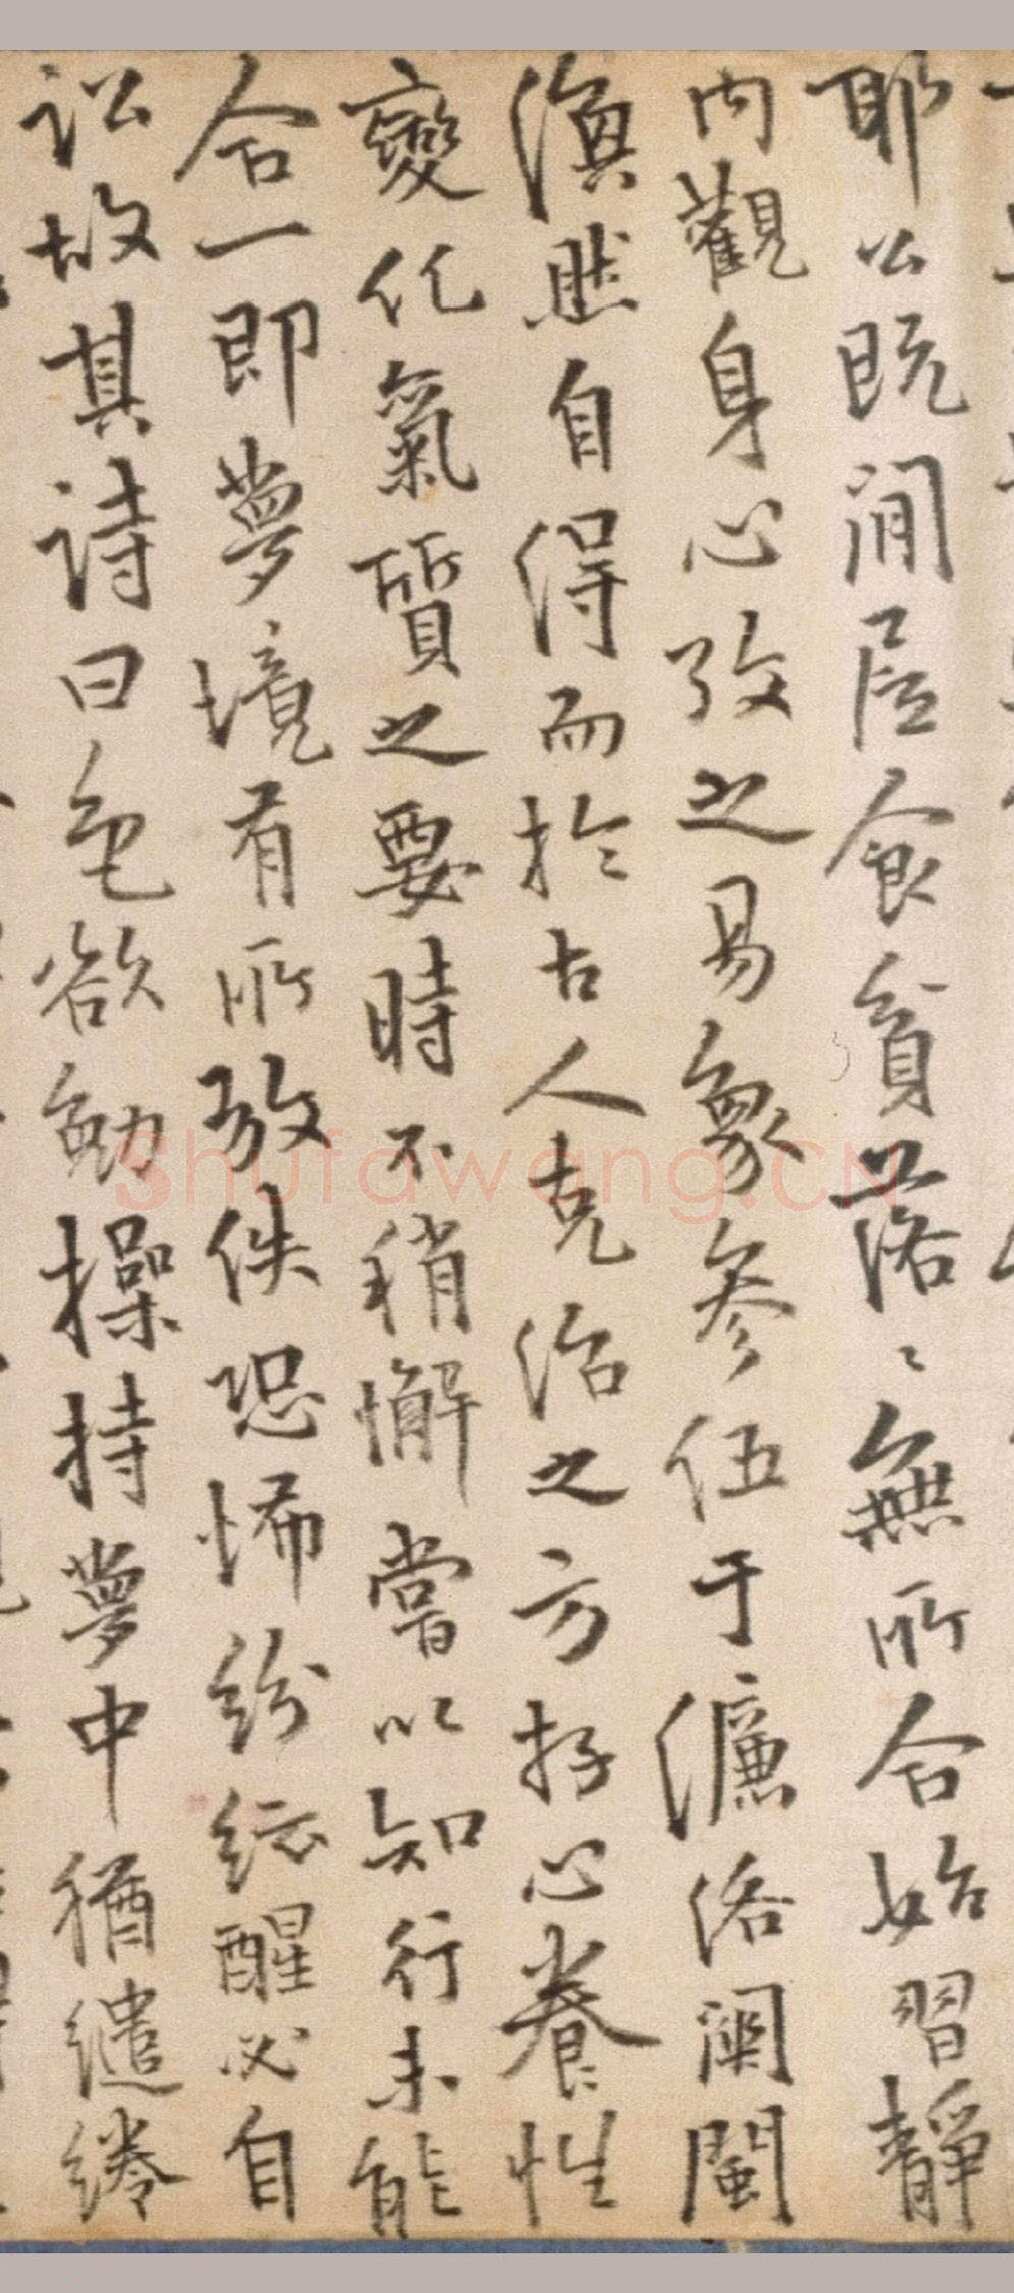 耶公既閒居食貧落〻無所合始習靜
内觀身心攷之易象參伍于濂洛関閩
渙然自得而於古人克治之方存心養性
變化氣質之要時不稍懈嘗以知行未能
合一即夢境有所放佚恐怖紛紜醒必自
訟故其詩曰色欲勉操持夢中猶繾綣
Shufawang.CN